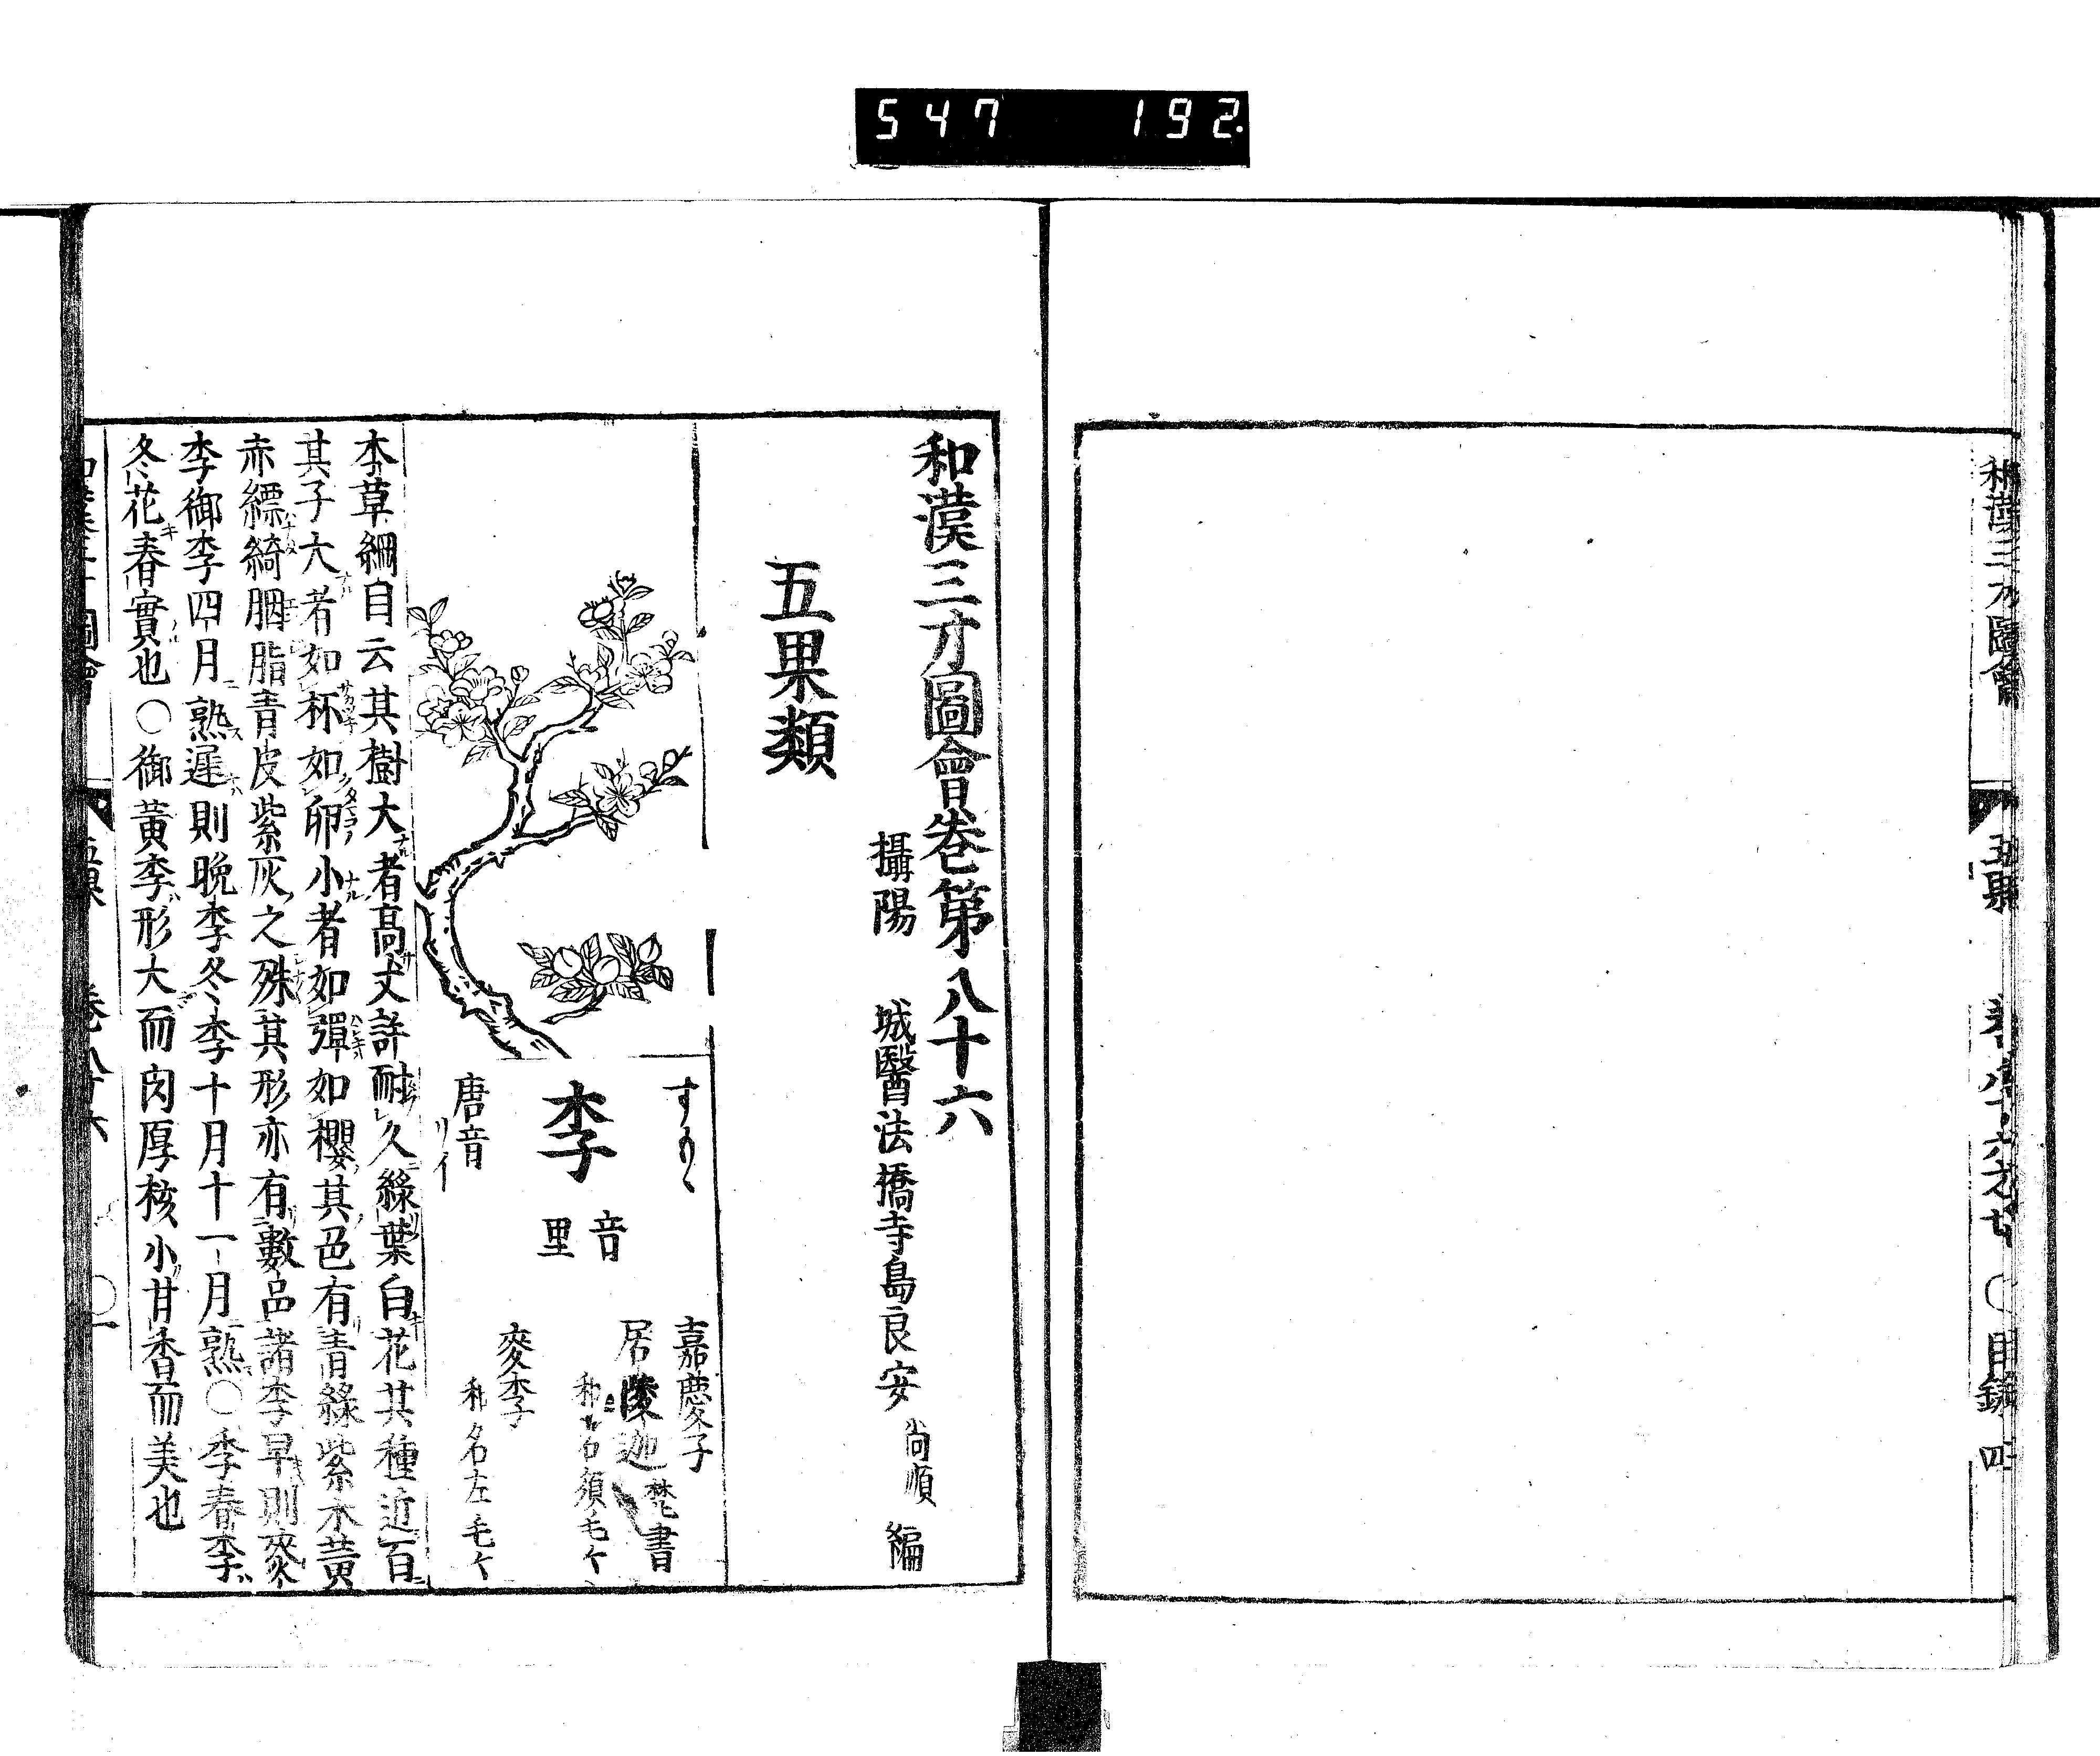 547 192.
和漢三才圖會
五果
卷八十六
目錄 四
和漢三才圖會卷第八十六
攝陽 城醫法橋寺島良安 尚順 編
五果類
すもゝ
李
音
里
唐音
リイ
嘉慶子
居陵迦 梵書
和名須毛々
麥李
和名左毛々
本草綱目云其樹大者高丈許耐久綠葉白花其種近百
其子大者如杯如卵小者如彈如櫻其色有青綠紫朱黃
赤縹綺胭脂青皮紫灰之殊其形亦有數品諸李早則麥
李御李四月熟遲則晚李冬李十月十一月熟○季春李
冬花春實也○御黃李形大而肉厚核小甘香而美也